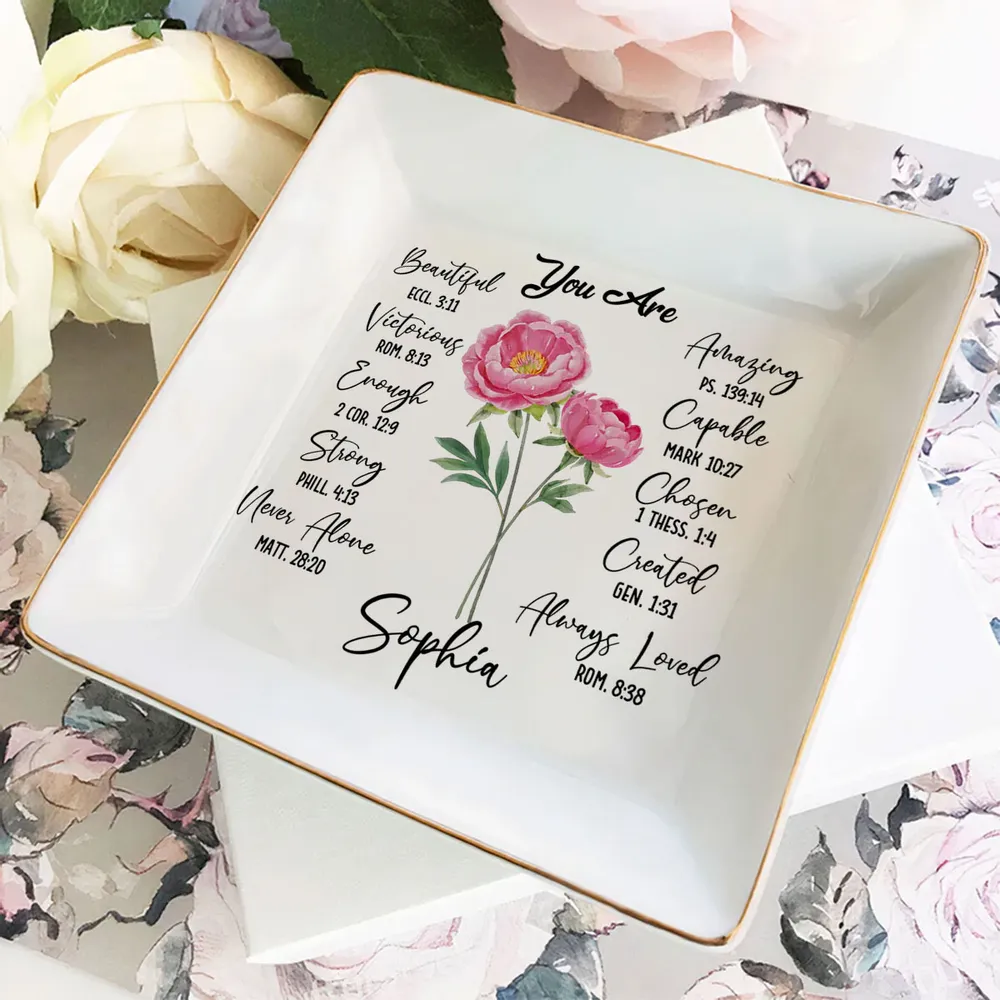 You Are
Beautiful
ECCL. 3:11
Victorious
ROM. 8:13
Enough
2 COR. 12:9
Strong
PHILL. 4:13
Never Alone
MATT. 28:20
Amazing
PS. 139:14
Capable
MARK 10:27
Chosen
1 THESS. 1:4
Created
GEN. 1:31
Always Loved
ROM. 8:38
Sophia